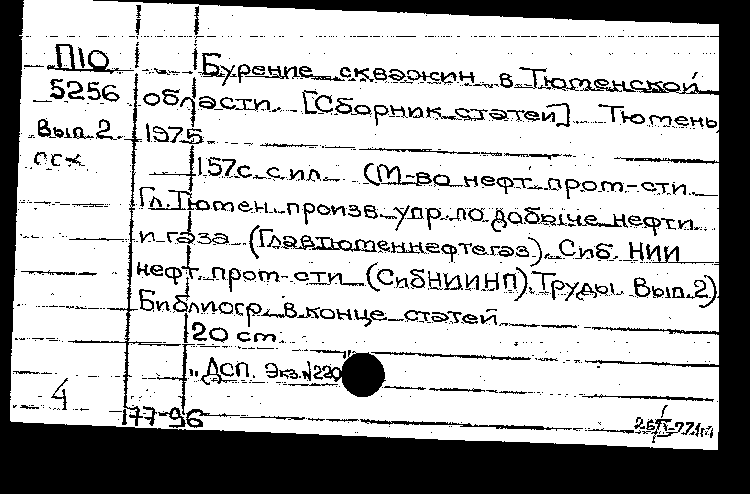 П10
5256
Вып. 2
ОСХ
Бурение скважин в Тюменской
области. [Сборник статей] Тюмень,
1975
157с. с ил. (М-во нефт. пром-сти.
Гл. Тюмен. произв. упр. по добыче нефти
и газа (Главтюменнефтегаз). Сиб. НИИ
нефт. пром-сти (СибНИИНП). Труды. Вып. 2)
Библиогр. в конце статей
20 cm.
„ДСП. Экз. №220"
4
177-96